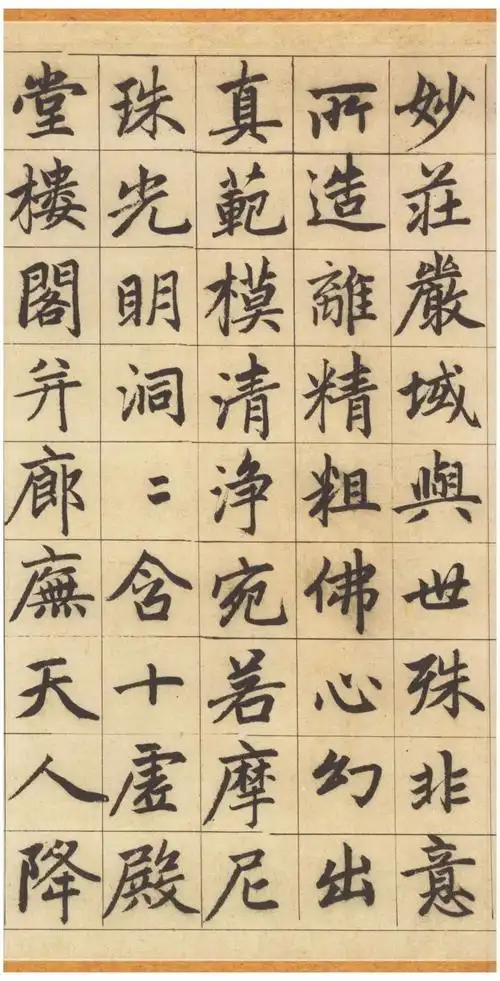 妙莊嚴域與世殊非意
所造離精粗佛心幻出
真範模清淨宛若摩尼
珠光明洞二含十虛殿
堂樓閣并廊廡天人降